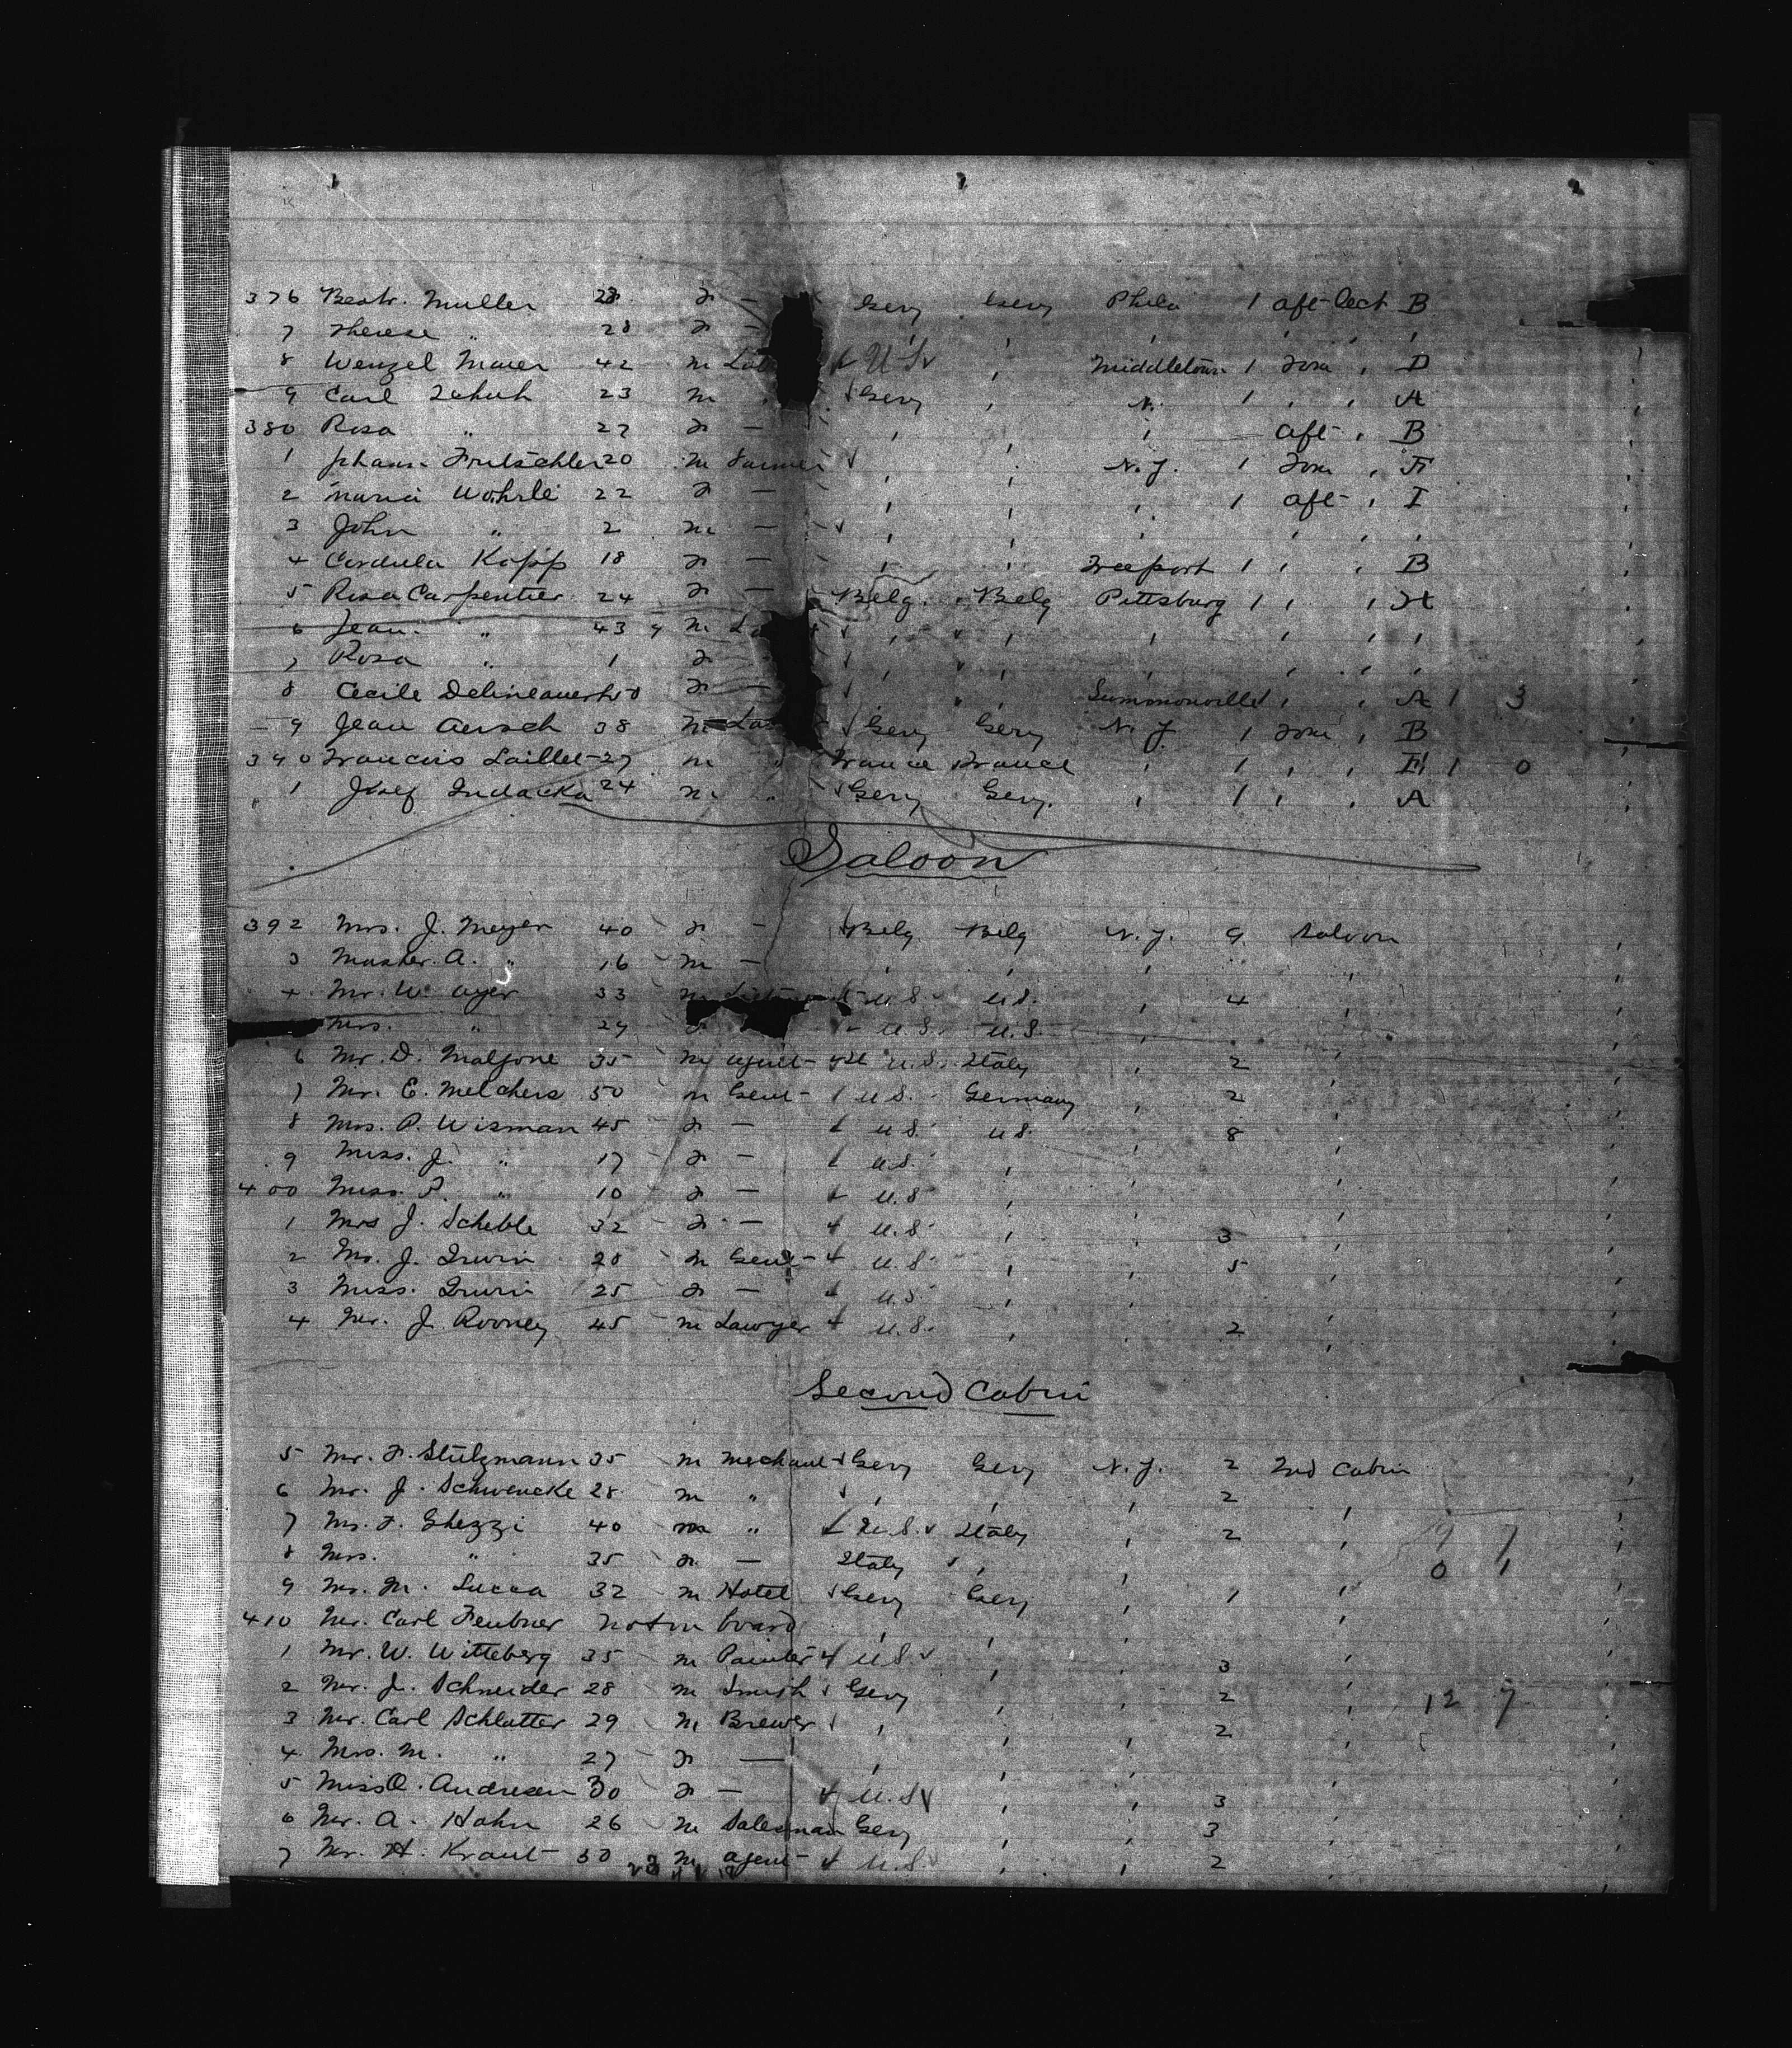 376 Beatr. Muller 28 f — Gery Gery Phila 1 aft Cect B
7 Therese " 28 f — , , , , ,
8 Wenzel Maier 42 m U.S. , Middletown 1 Fore , D
9 Carl Schuh 23 m Gery , N. 1 , , A
380 Rosa " 27 f — , , , aft , B
1 Johann Fritschler 20 m Farmer , , N.J. 1 Fore , F
2 Maria Wöhrle 22 f — , , , 1 aft , I
3 John " 2 m — , , , , , ,
4 Cordula Kopp 18 f — , , Freeport 1 , , B
5 Rosa Carpentier 24 f — Belg. Belg Pittsburg 1 , , H
6 Jean " 43 m , , , , , ,
7 Rosa " 1 f , , , , , ,
8 Cecile 50 f — , , Summonville 1 , , A 1 3
9 Jean Aersch 38 m Gery Gery N.J. 1 Fore , B
390 Francois Laillet 27 m " France France , 1 , , E 1 0
1 Josef 24 m " Gery Gery. , 1 , , A
Saloon
392 Mrs. J. Meyer 40 f — Belg Belg N.J. 9 Saloon
3 Master A. " 16 m — , , , ,
4 Mr. W. Oyer 33 m U.S. U.S. , 4 ,
Mrs. " 29 f U.S. U.S. , ,
6 Mr. D. Maljone 35 m agent U.S. Italy , 2 ,
7 Mr. E. Melchers 50 m Gent U.S. Germany , 2 ,
8 Mrs. P. Wisman 45 f — U.S. U.S. , 8 ,
9 Miss. J. " 17 f — U.S. , , ,
400 Miss. P. " 10 f — U.S. , , ,
1 Mrs J. Scheble 32 f — U.S. , , 3 ,
2 Mr. J. Irwin 28 m Gent U.S. , , 5 ,
3 Miss. Irwin 25 f — U.S. , , ,
4 Mr. J. Rooney 45 m Lawyer U.S. , , 2 ,
Second Cabin
5 Mr. F. Stützmann 35 m Mechant Gery Gery N.J. 2 2nd Cabin
6 Mr. J. Schwencke 28 m " , , , 2 ,
7 Mr. F. Ghezzi 40 m " U.S. Italy , 2 , 9 7
8 Mrs. " 35 f — Italy , , , 0 1
9 Mr. M. Lucca 32 m Hotel Gery Gery , 1 ,
410 Mr. Carl Feubner not on board , , , ,
1 Mr. W. Witteberg 35 m Painter U.S. , , 3 ,
2 Mr. J. Schneider 28 m Smith Gery , , 2 , 12 7
3 Mr. Carl Schlatter 29 m Brewer , , , 2 ,
4 Mrs. M. " 27 f — , , , ,
5 Miss O. Andresen 30 f — U.S. , , 3 ,
6 Mr. A. Hahn 26 m Salesman Gery , , 3 ,
7 Mr. H. Kraut 50 m agent U.S. , , 2 ,